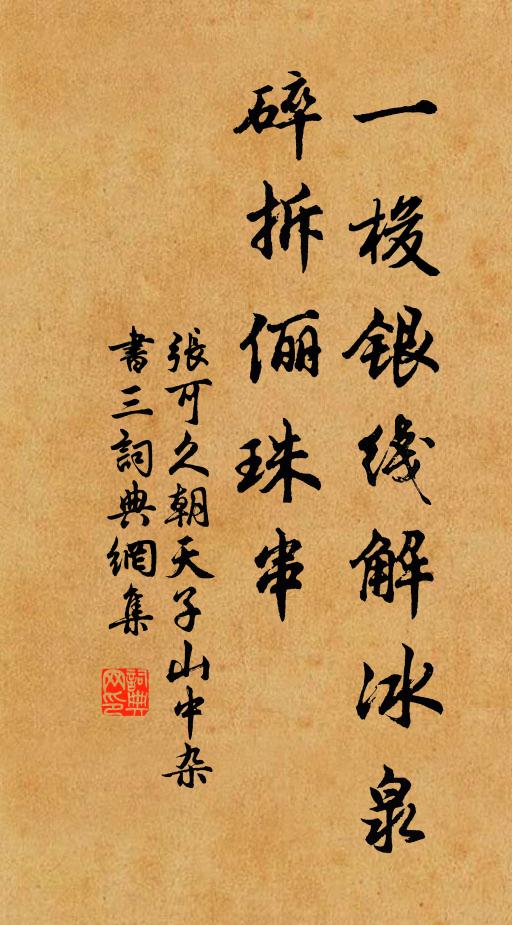 一梭银线解冰泉
碎拆俪珠串
張可久朝天子山中杂
書三詞典網集
詞典
网印